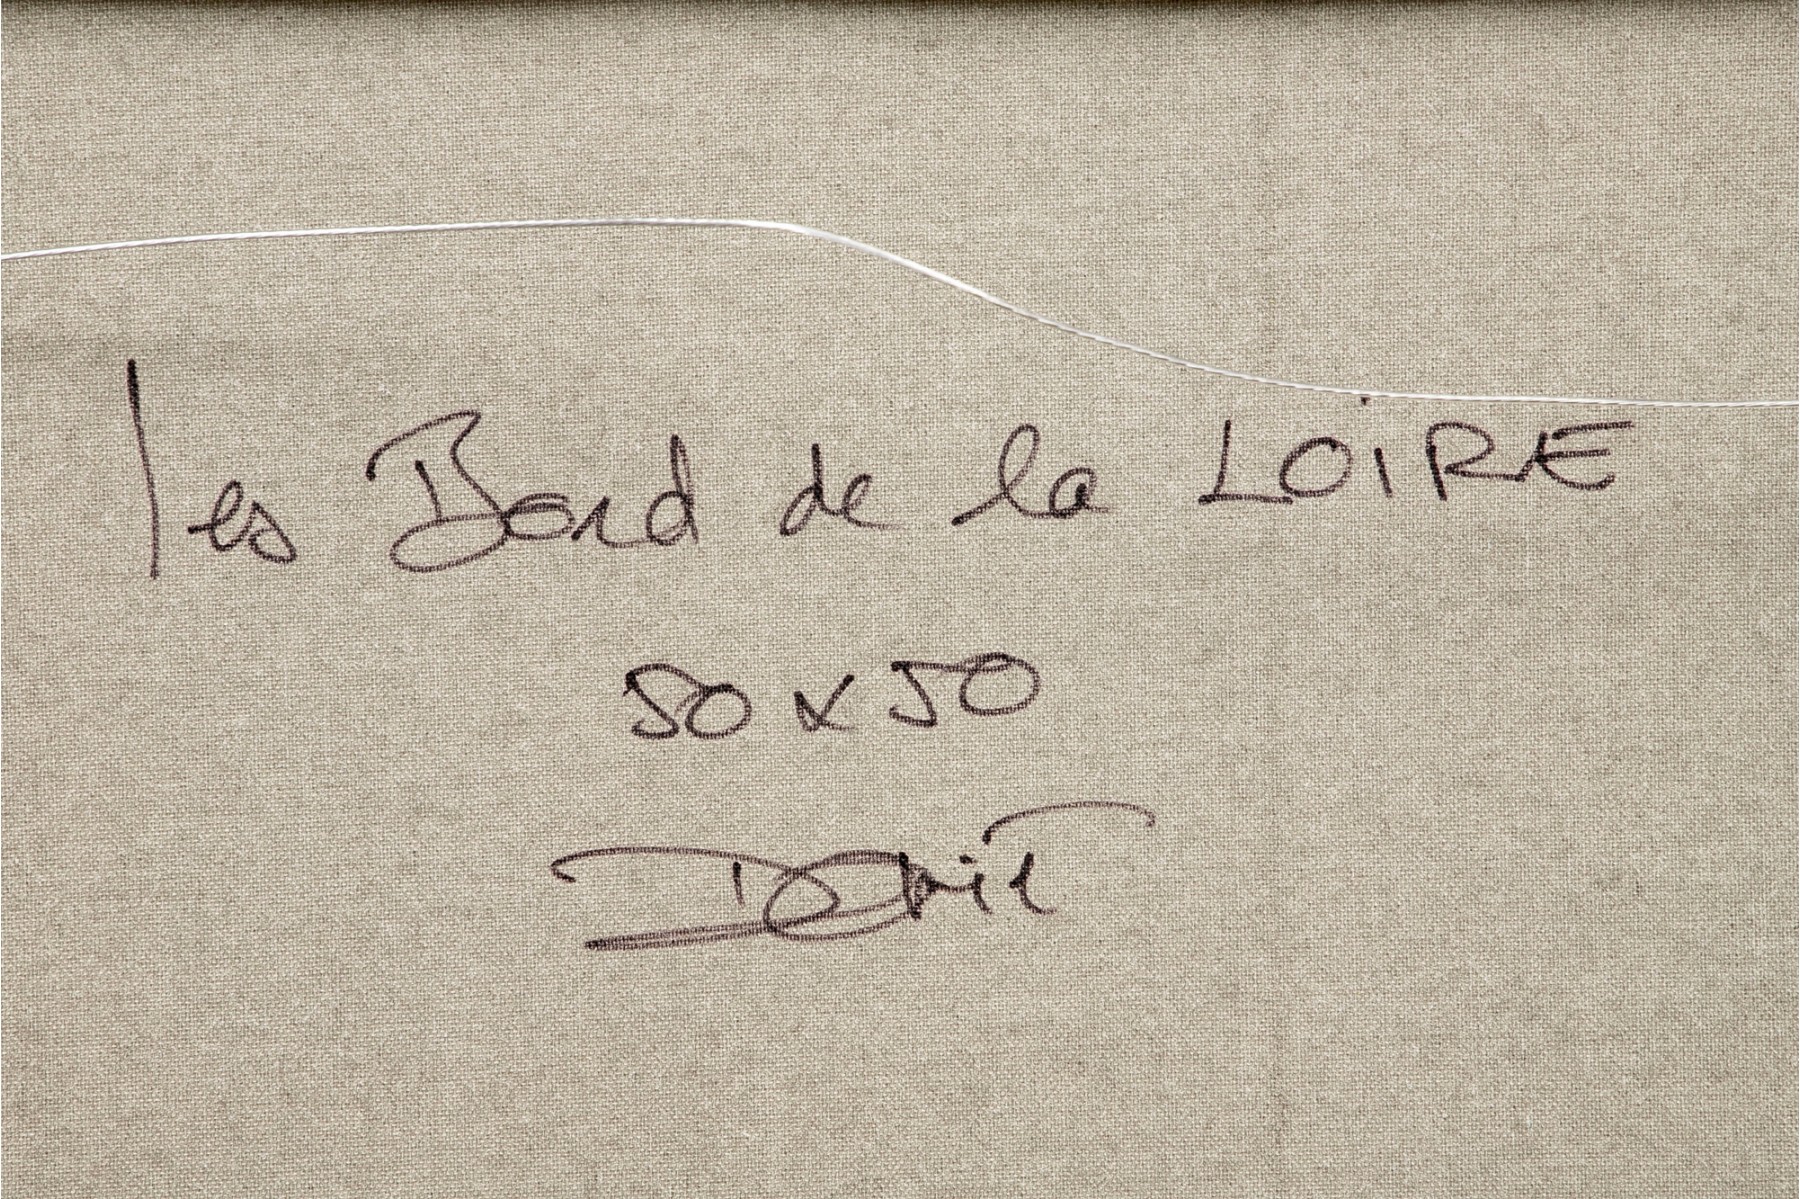 les Bord de la LOiRE
50 x 50